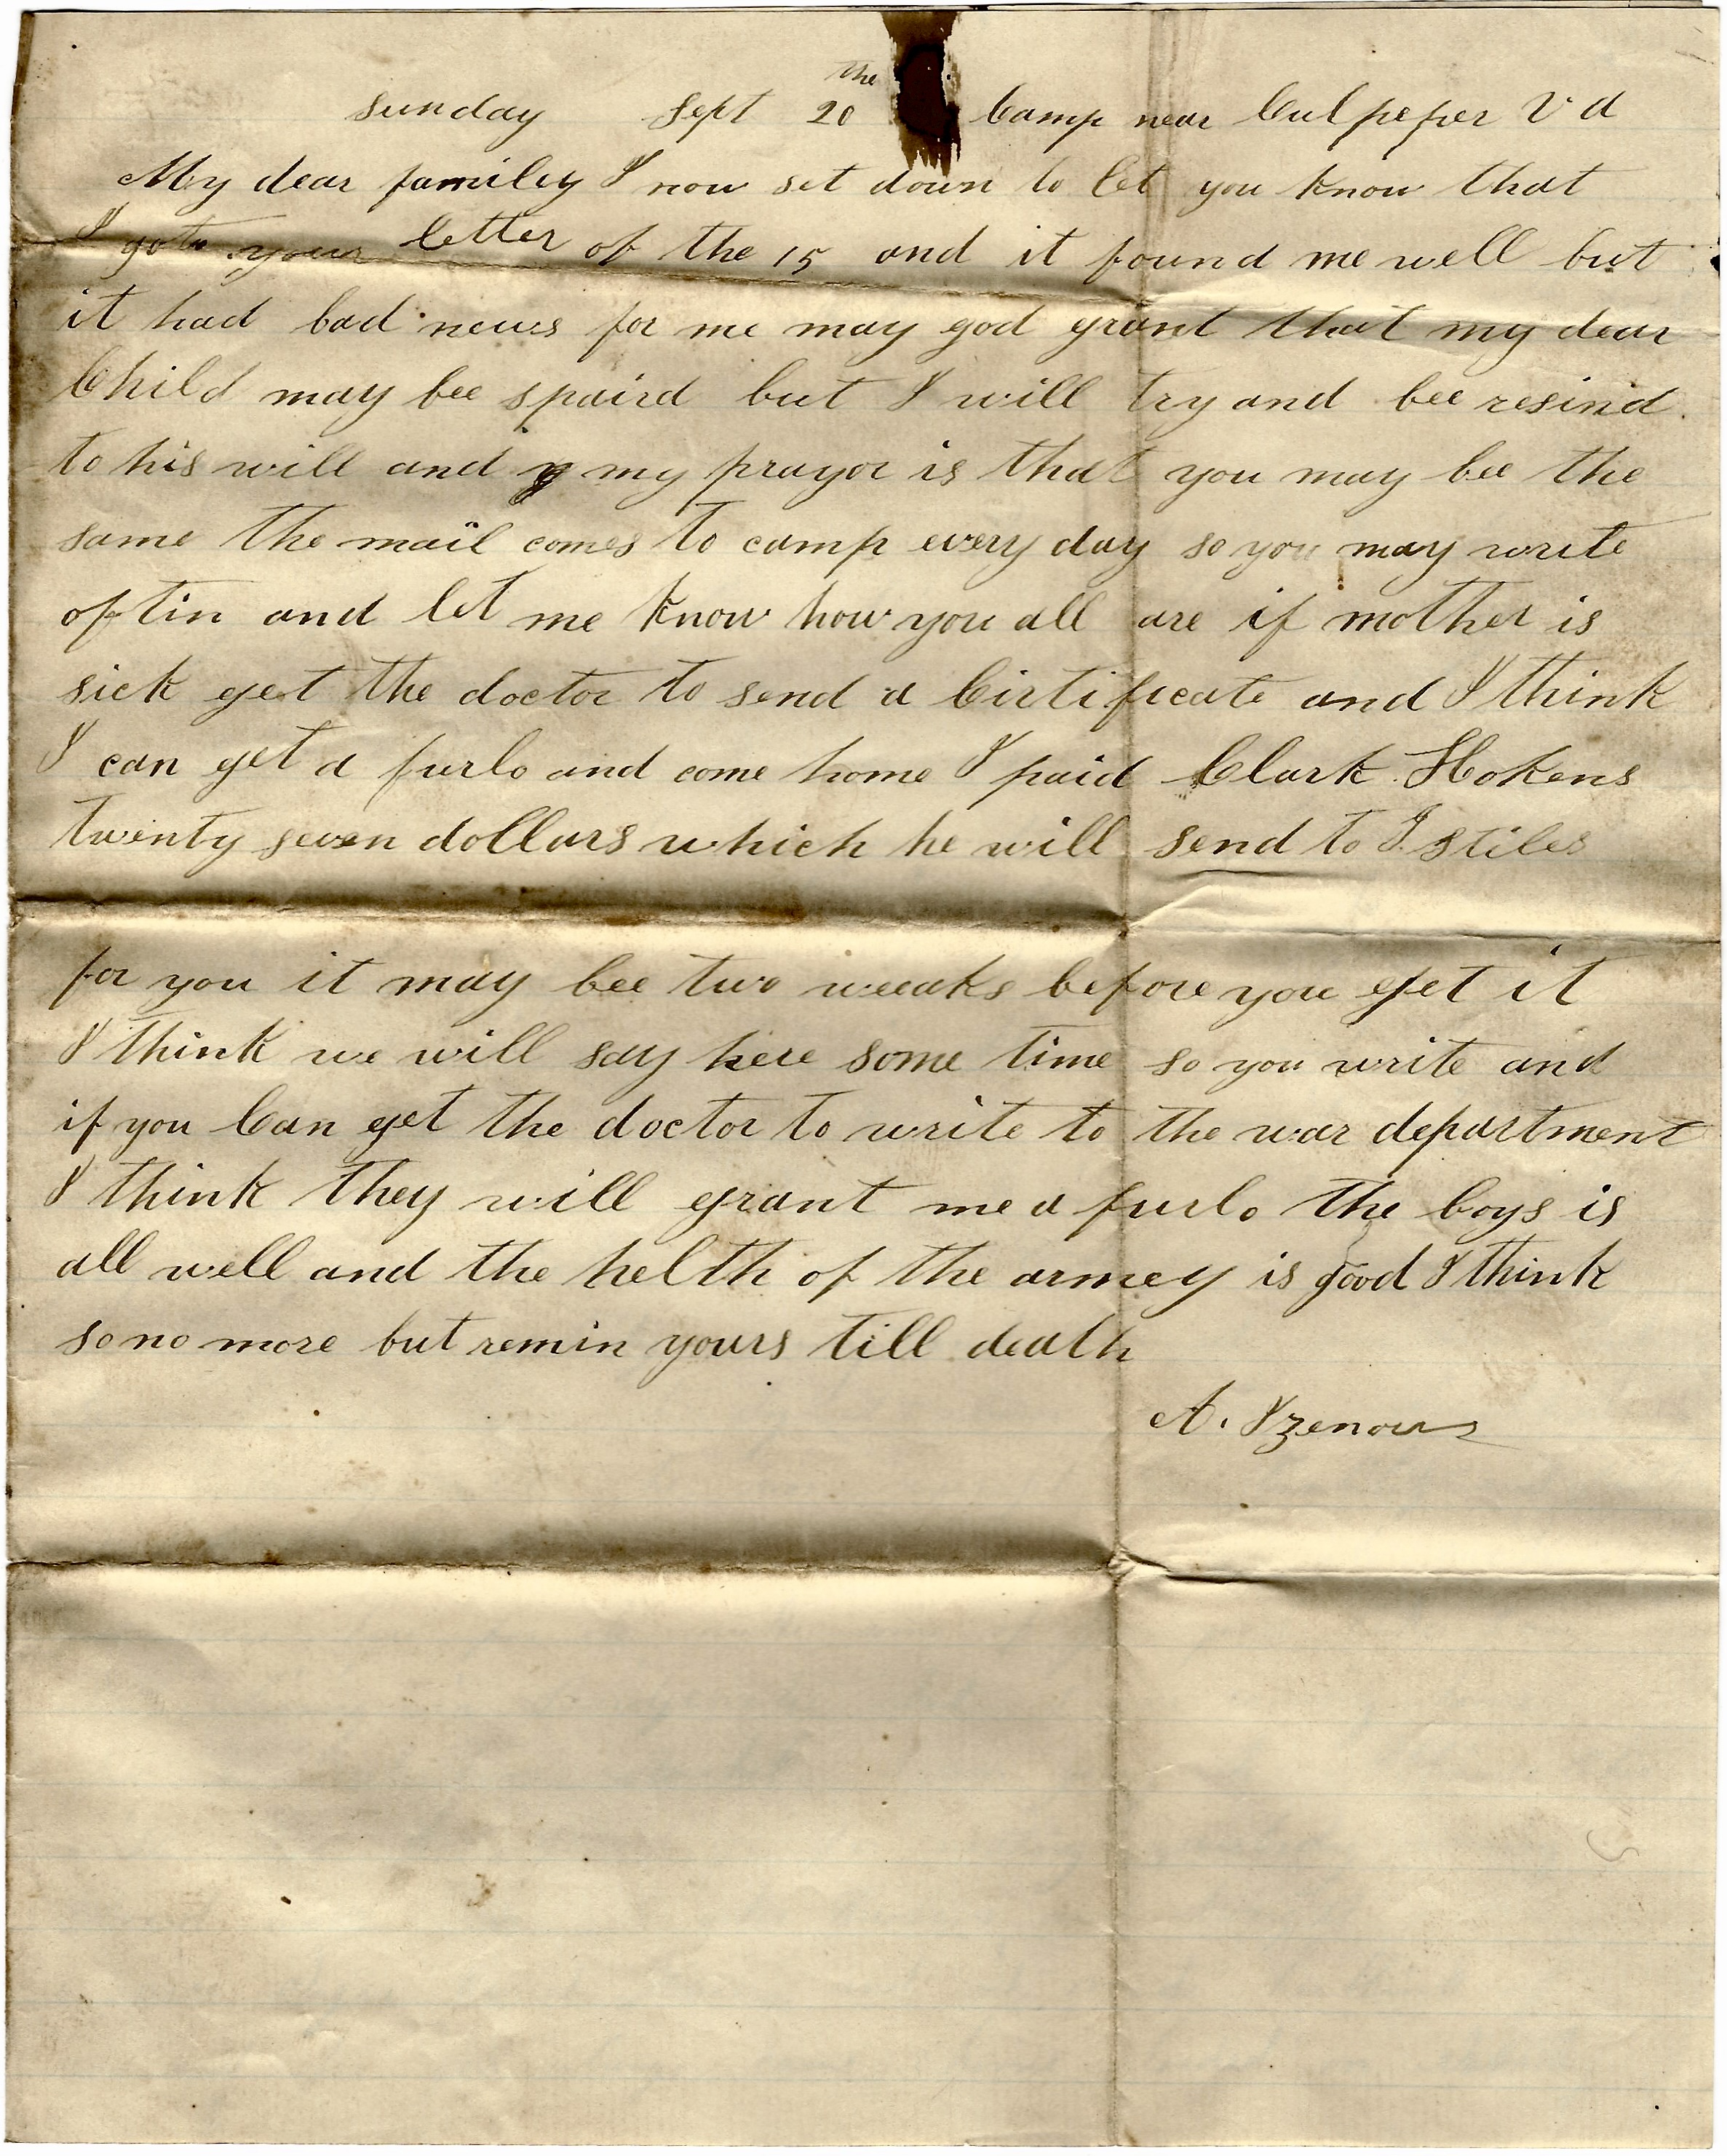 sunday sept 20 the Camp near Culpeper Va
My dear familey I now set down to let you know that
I got your letter of the 15 and it found me well but
it had bad news for me may god grant that my dear
Child may bee spaird but I will try and bee resind
to his will and my prayor is that you may bee the
same the mail comes to camp every day so you may write
oftin and let me know how you all are if mother is
sick get the doctor to send a Cirtificate and I think
I can get a furlo and come home I paid Clark Hokens
twenty seven dollars which he will send to J. Stiles
for you it may bee two weeaks before you get it
I think we will say here some time so you write and
if you Can get the doctor to write to the war department
I think they will grant me a furlo the boys is
all well and the helth of the armey is good I think
so no more but remin yours till death
A. Izenour